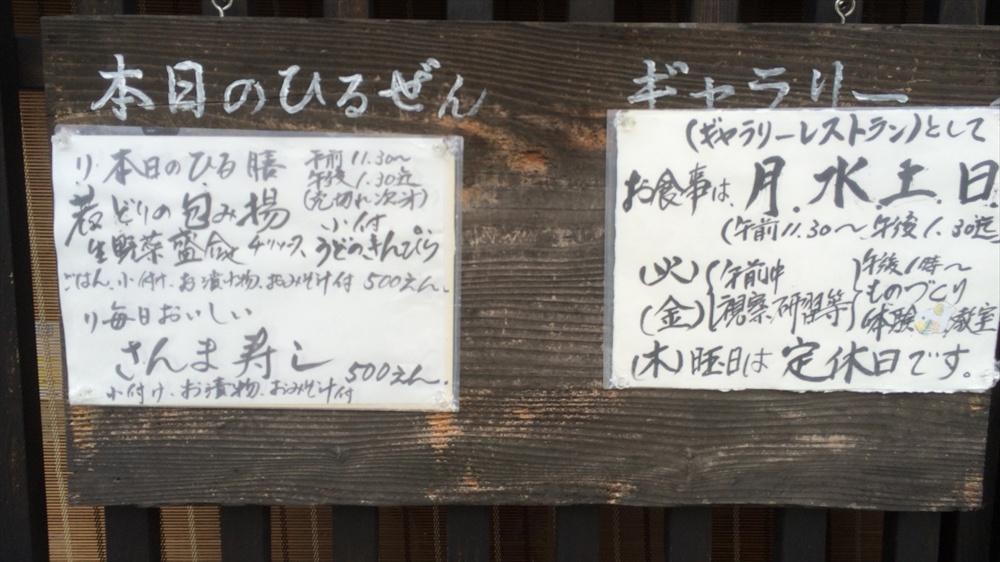 本日のひるぜん
り 本日のひる膳
午前11.30〜
午後1.30迄
(売切れ次才)
若どりの包み揚
小付
生野菜盛合せ チリソース うどのきんぴら
ごはん、小付け、お漬け物、おみそ汁付 500えん
り 毎日おいしい
さんま寿し 500えん
小付け、お漬物、おみそ汁付
ギャラリー
(ギャラリーレストラン)として
お食事は、月、水、土、日
(午前11.30〜午後1.30迄
(火)
(金)
午前中
視察、研修等
午後1時〜
ものづくり
体験 教室
(木)曜日は定休日です。